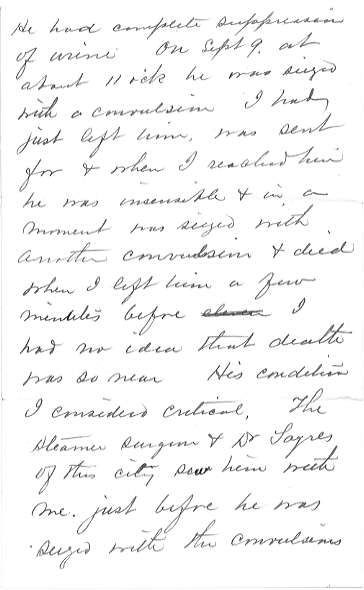 He had complete suppression
of urine On Sept 9. at
about 11 ock he was seized
with a convulsion I had
just left him, was sent
for & when I reached him
he was insensible & in a
moment was seized with
another convulsion & died
when I left him a few
minutes before eleven I
had no idea that death
was so near His condition
I considered critical. The
steamer surgeon & Dr Sayres
of this city saw him with
me. just before he was
seized with the convulsions